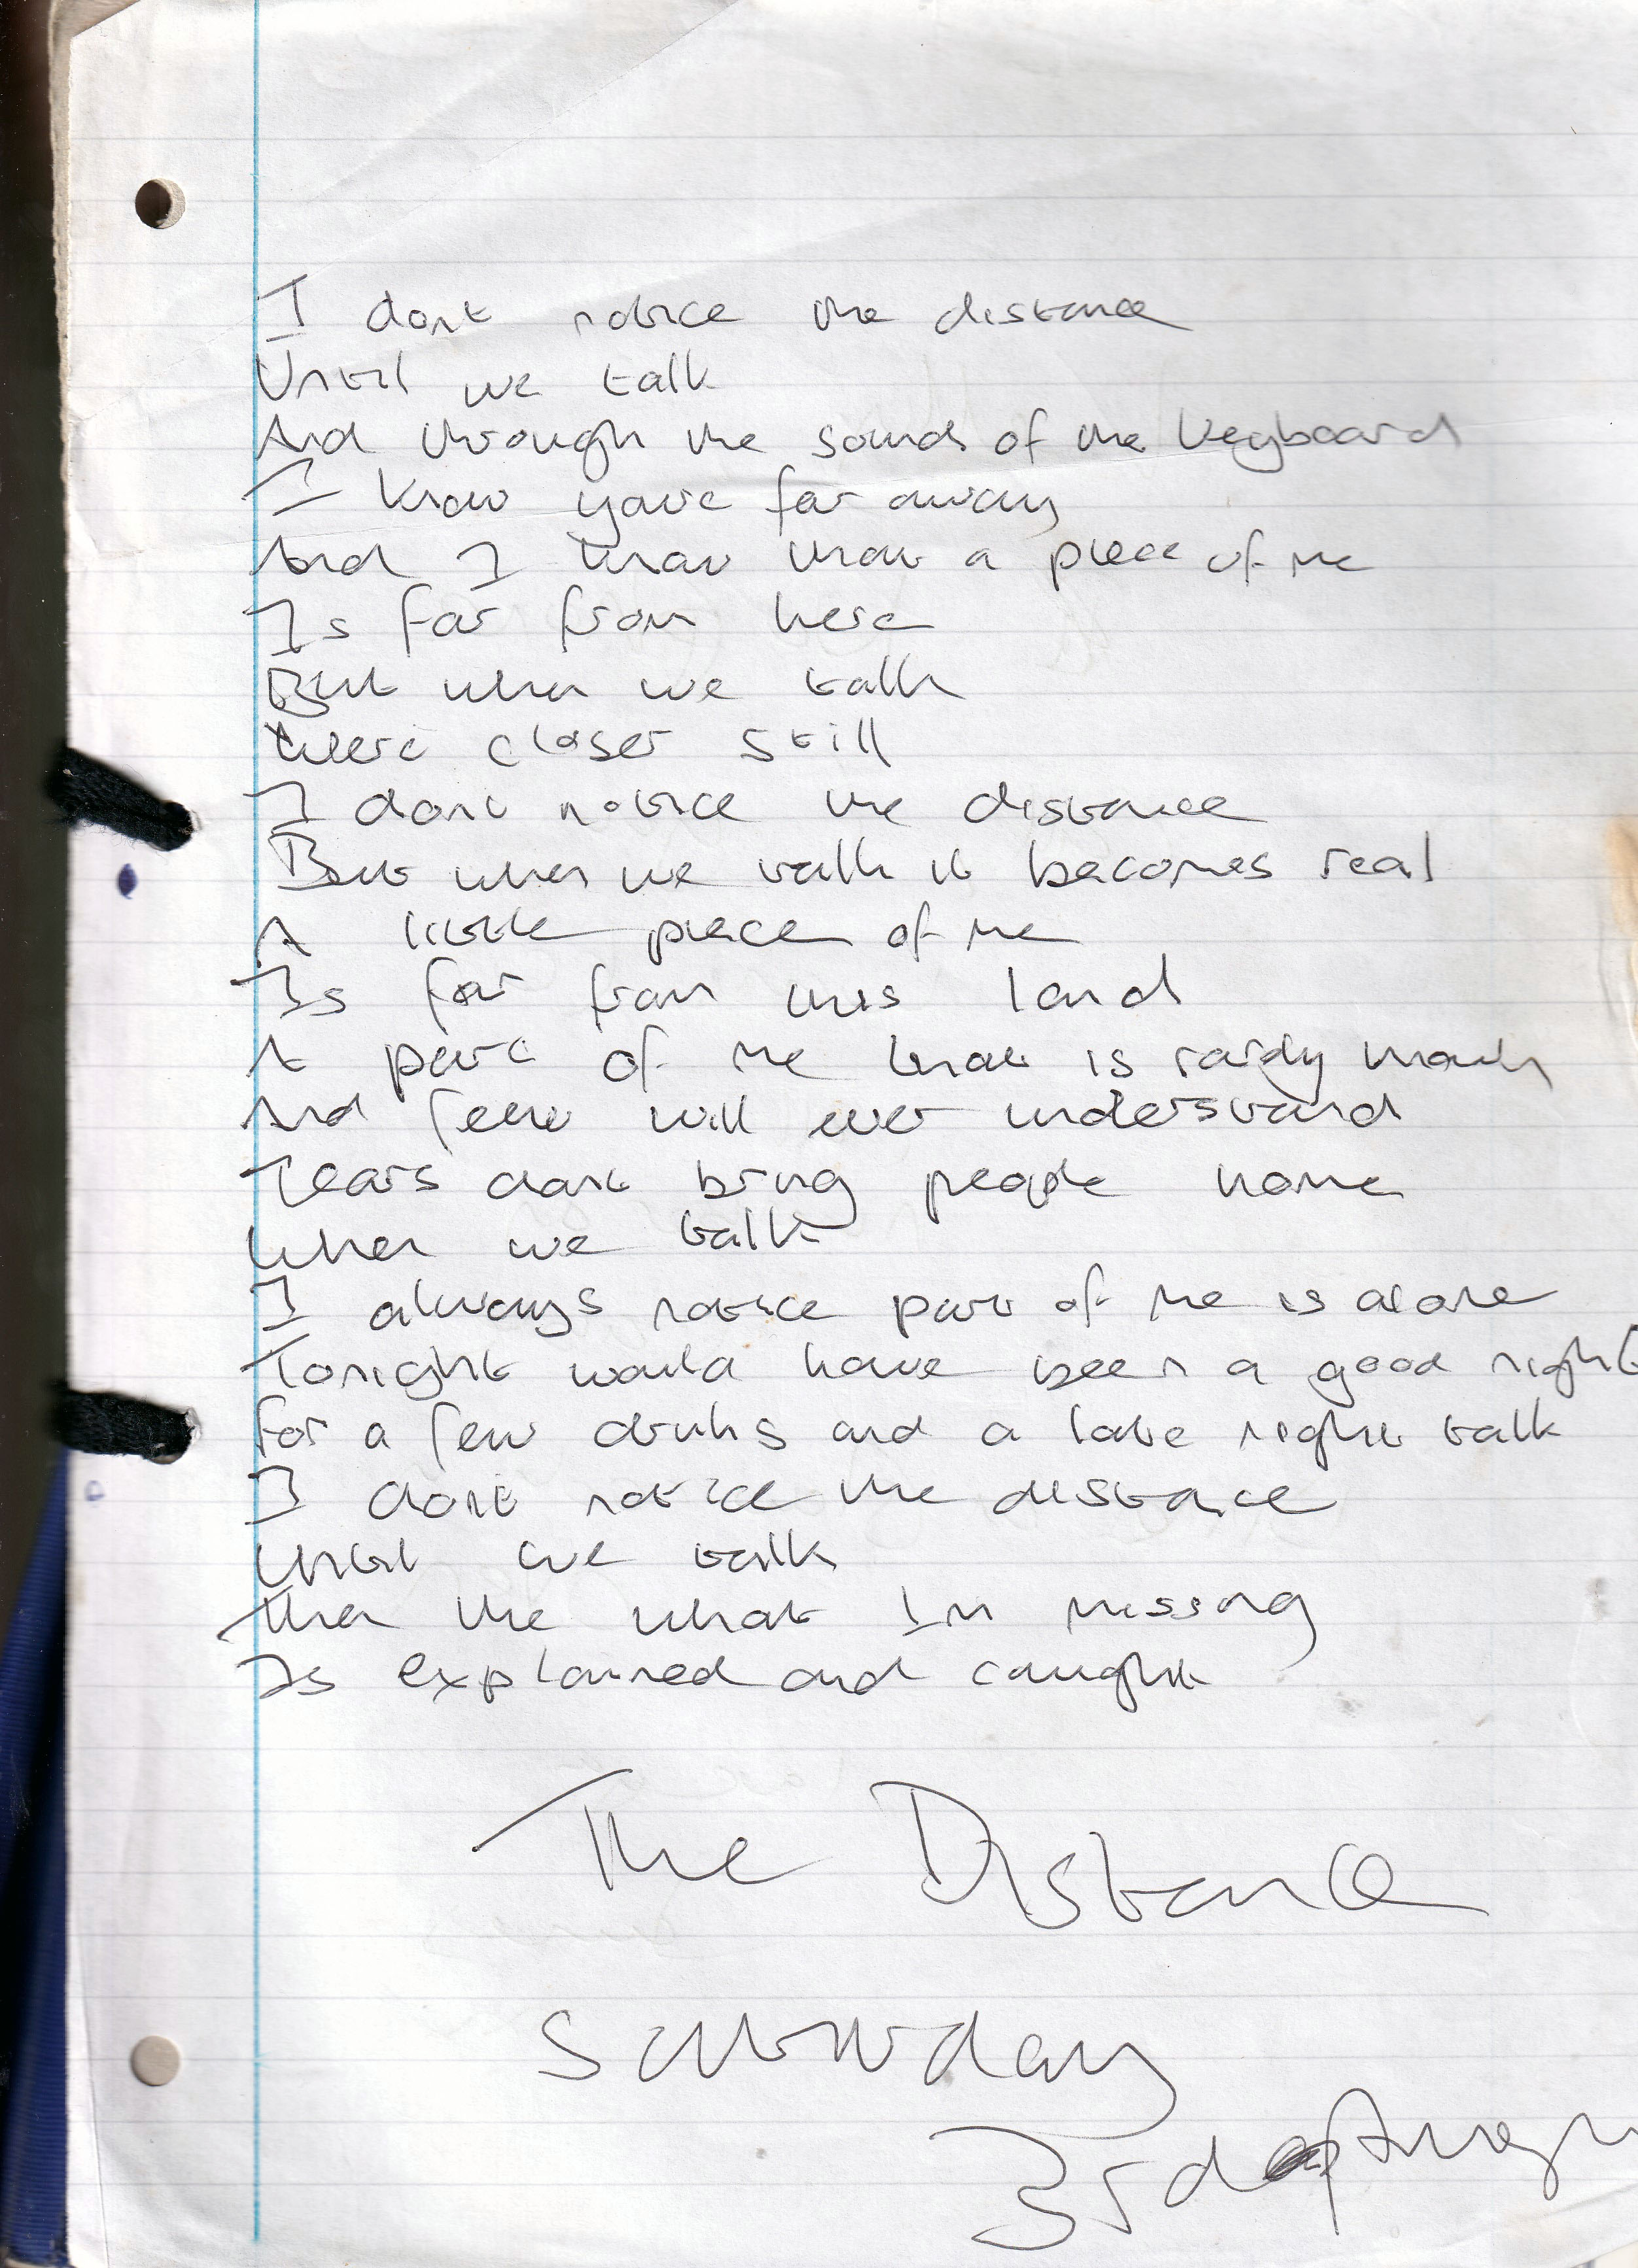 I dont notice the distance
Until we talk
And through the sounds of the keyboard
I know your far away
And I know that a piece of me
Is far from here
But when we talk
Were closer still
I dont notice the distance
But when we talk it becomes real
A little piece of me
Is far from this land
A part of me that is rarely
And few will ever understand
Tears dont bring people home
When we talk
I always notice part of me is alone
Tonight would have been a good night
For a few drinks and a late night talk
I dont notice the distance
Until we talk
Then the what Im missing
Is explained and caught
The Distance
Saturday
3rd of